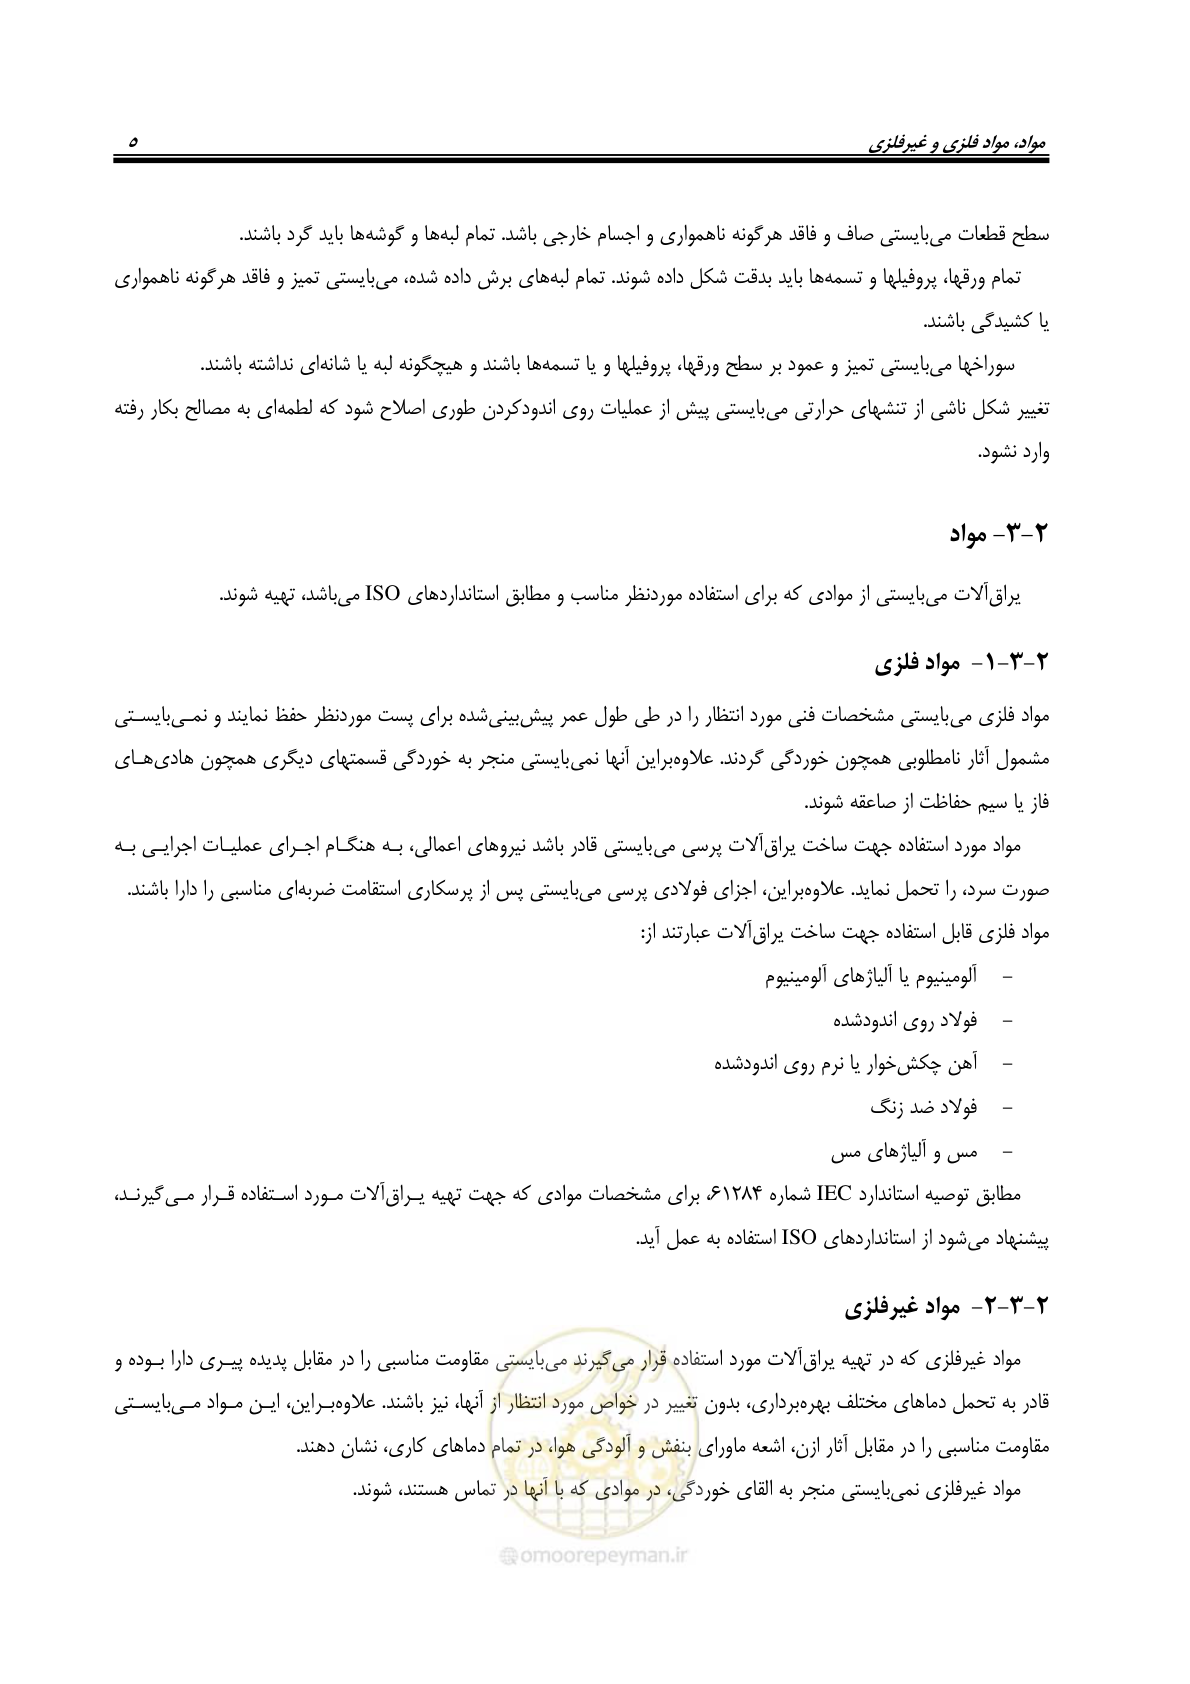 مواد، مواد فلزی و غیرفلزی ۵
سطح قطعات می‌بایستی صاف و فاقد هرگونه ناهمواری و اجسام خارجی باشد. تمام لبه‌ها و گوشه‌ها باید گرد باشند.
تمام ورقها، پروفیلها و تسمه‌ها باید بدقت شکل داده شوند. تمام لبه‌های برش داده شده، می‌بایستی تمیز و فاقد هرگونه ناهمواری
یا کشیدگی باشند.
سوراخها می‌بایستی تمیز و عمود بر سطح ورقها، پروفیلها و یا تسمه‌ها باشند و هیچگونه لبه یا شانه‌ای نداشته باشند.
تغییر شکل ناشی از تنشهای حرارتی می‌بایستی پیش از عملیات روی اندودکردن طوری اصلاح شود که لطمه‌ای به مصالح بکار رفته
وارد نشود.
۲-۳- مواد
یراق‌آلات می‌بایستی از موادی که برای استفاده موردنظر مناسب و مطابق استانداردهای ISO می‌باشد، تهیه شوند.
۲-۳-۱- مواد فلزی
مواد فلزی می‌بایستی مشخصات فنی مورد انتظار را در طی طول عمر پیش‌بینی‌شده برای پست موردنظر حفظ نمایند و نمی‌بایستی
مشمول آثار نامطلوبی همچون خوردگی گردند. علاوه‌براین آنها نمی‌بایستی منجر به خوردگی قسمتهای دیگری همچون هادی‌های
فاز یا سیم حفاظت از صاعقه شوند.
مواد مورد استفاده جهت ساخت یراق‌آلات پرسی می‌بایستی قادر باشد نیروهای اعمالی، به هنگام اجرای عملیات اجرایی به
صورت سرد، را تحمل نماید. علاوه‌براین، اجزای فولادی پرسی می‌بایستی پس از پرسکاری استقامت ضربه‌ای مناسبی را دارا باشند.
مواد فلزی قابل استفاده جهت ساخت یراق‌آلات عبارتند از:
- آلومینیوم یا آلیاژهای آلومینیوم
- فولاد روی اندودشده
- آهن چکش‌خوار یا نرم روی اندودشده
- فولاد ضد زنگ
- مس و آلیاژهای مس
مطابق توصیه استاندارد IEC شماره ۶۱۲۸۴، برای مشخصات موادی که جهت تهیه یراق‌آلات مورد استفاده قرار می‌گیرند،
پیشنهاد می‌شود از استانداردهای ISO استفاده به عمل آید.
۲-۳-۲- مواد غیرفلزی
مواد غیرفلزی که در تهیه یراق‌آلات مورد استفاده قرار می‌گیرند می‌بایستی مقاومت مناسبی را در مقابل پدیده پیری دارا بوده و
قادر به تحمل دماهای مختلف بهره‌برداری، بدون تغییر در خواص مورد انتظار از آنها، نیز باشند. علاوه‌براین، این مواد می‌بایستی
مقاومت مناسبی را در مقابل آثار ازن، اشعه ماورای بنفش و آلودگی هوا، در تمام دماهای کاری، نشان دهند.
مواد غیرفلزی نمی‌بایستی منجر به القای خوردگی، در موادی که با آنها در تماس هستند، شوند.
امور پیمان
@omoorepeyman.ir